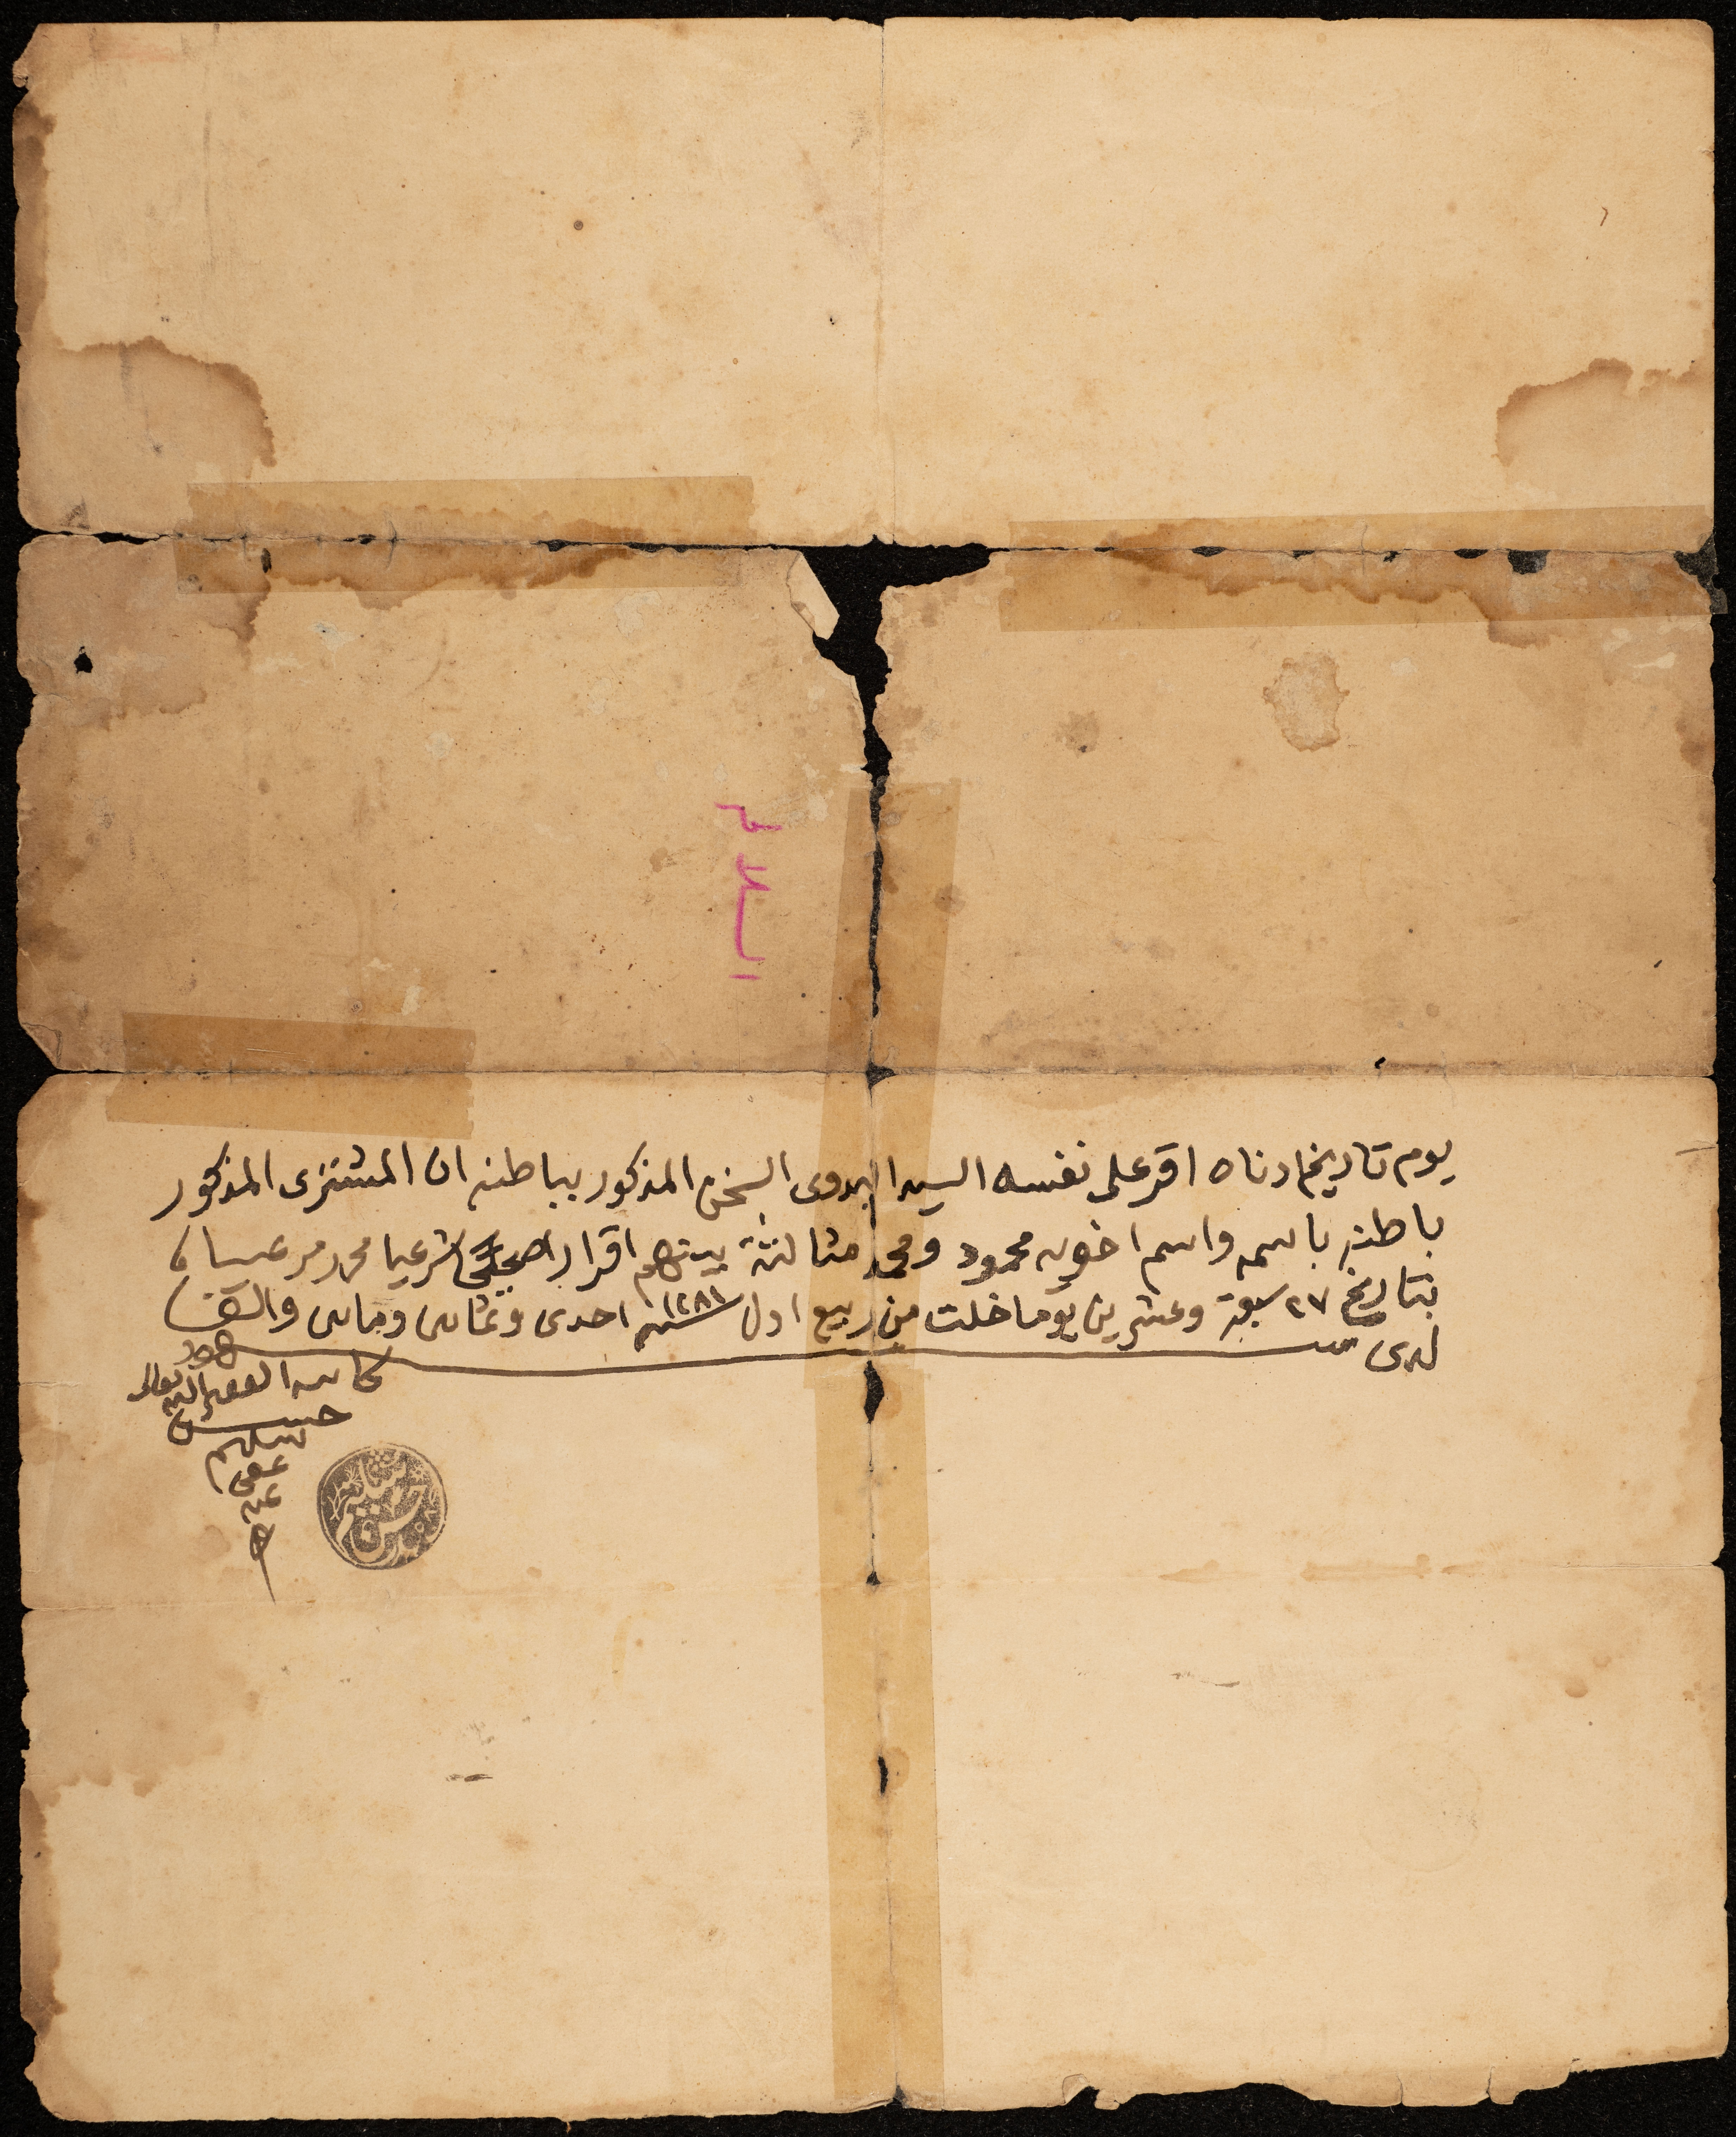 السلام
يوم تاريخ ادناه اقر على نفسه السيد البدوى المذكور بباطنه ان المشترى المذكور
باطنه باسمه واسم اخويه محمود ومحمد مثالثة بينهم اقرارا صحيحا شرعيا
بتاريخ ٢٧ سبعة وعشرين يوما خلت من ربيع اول سنة ١٢٨١ احدى وثمانين ومايتين والف
لدى شهود
كاتبه الفقير اليه تعالى
حسن
سليم
عفى
عنه